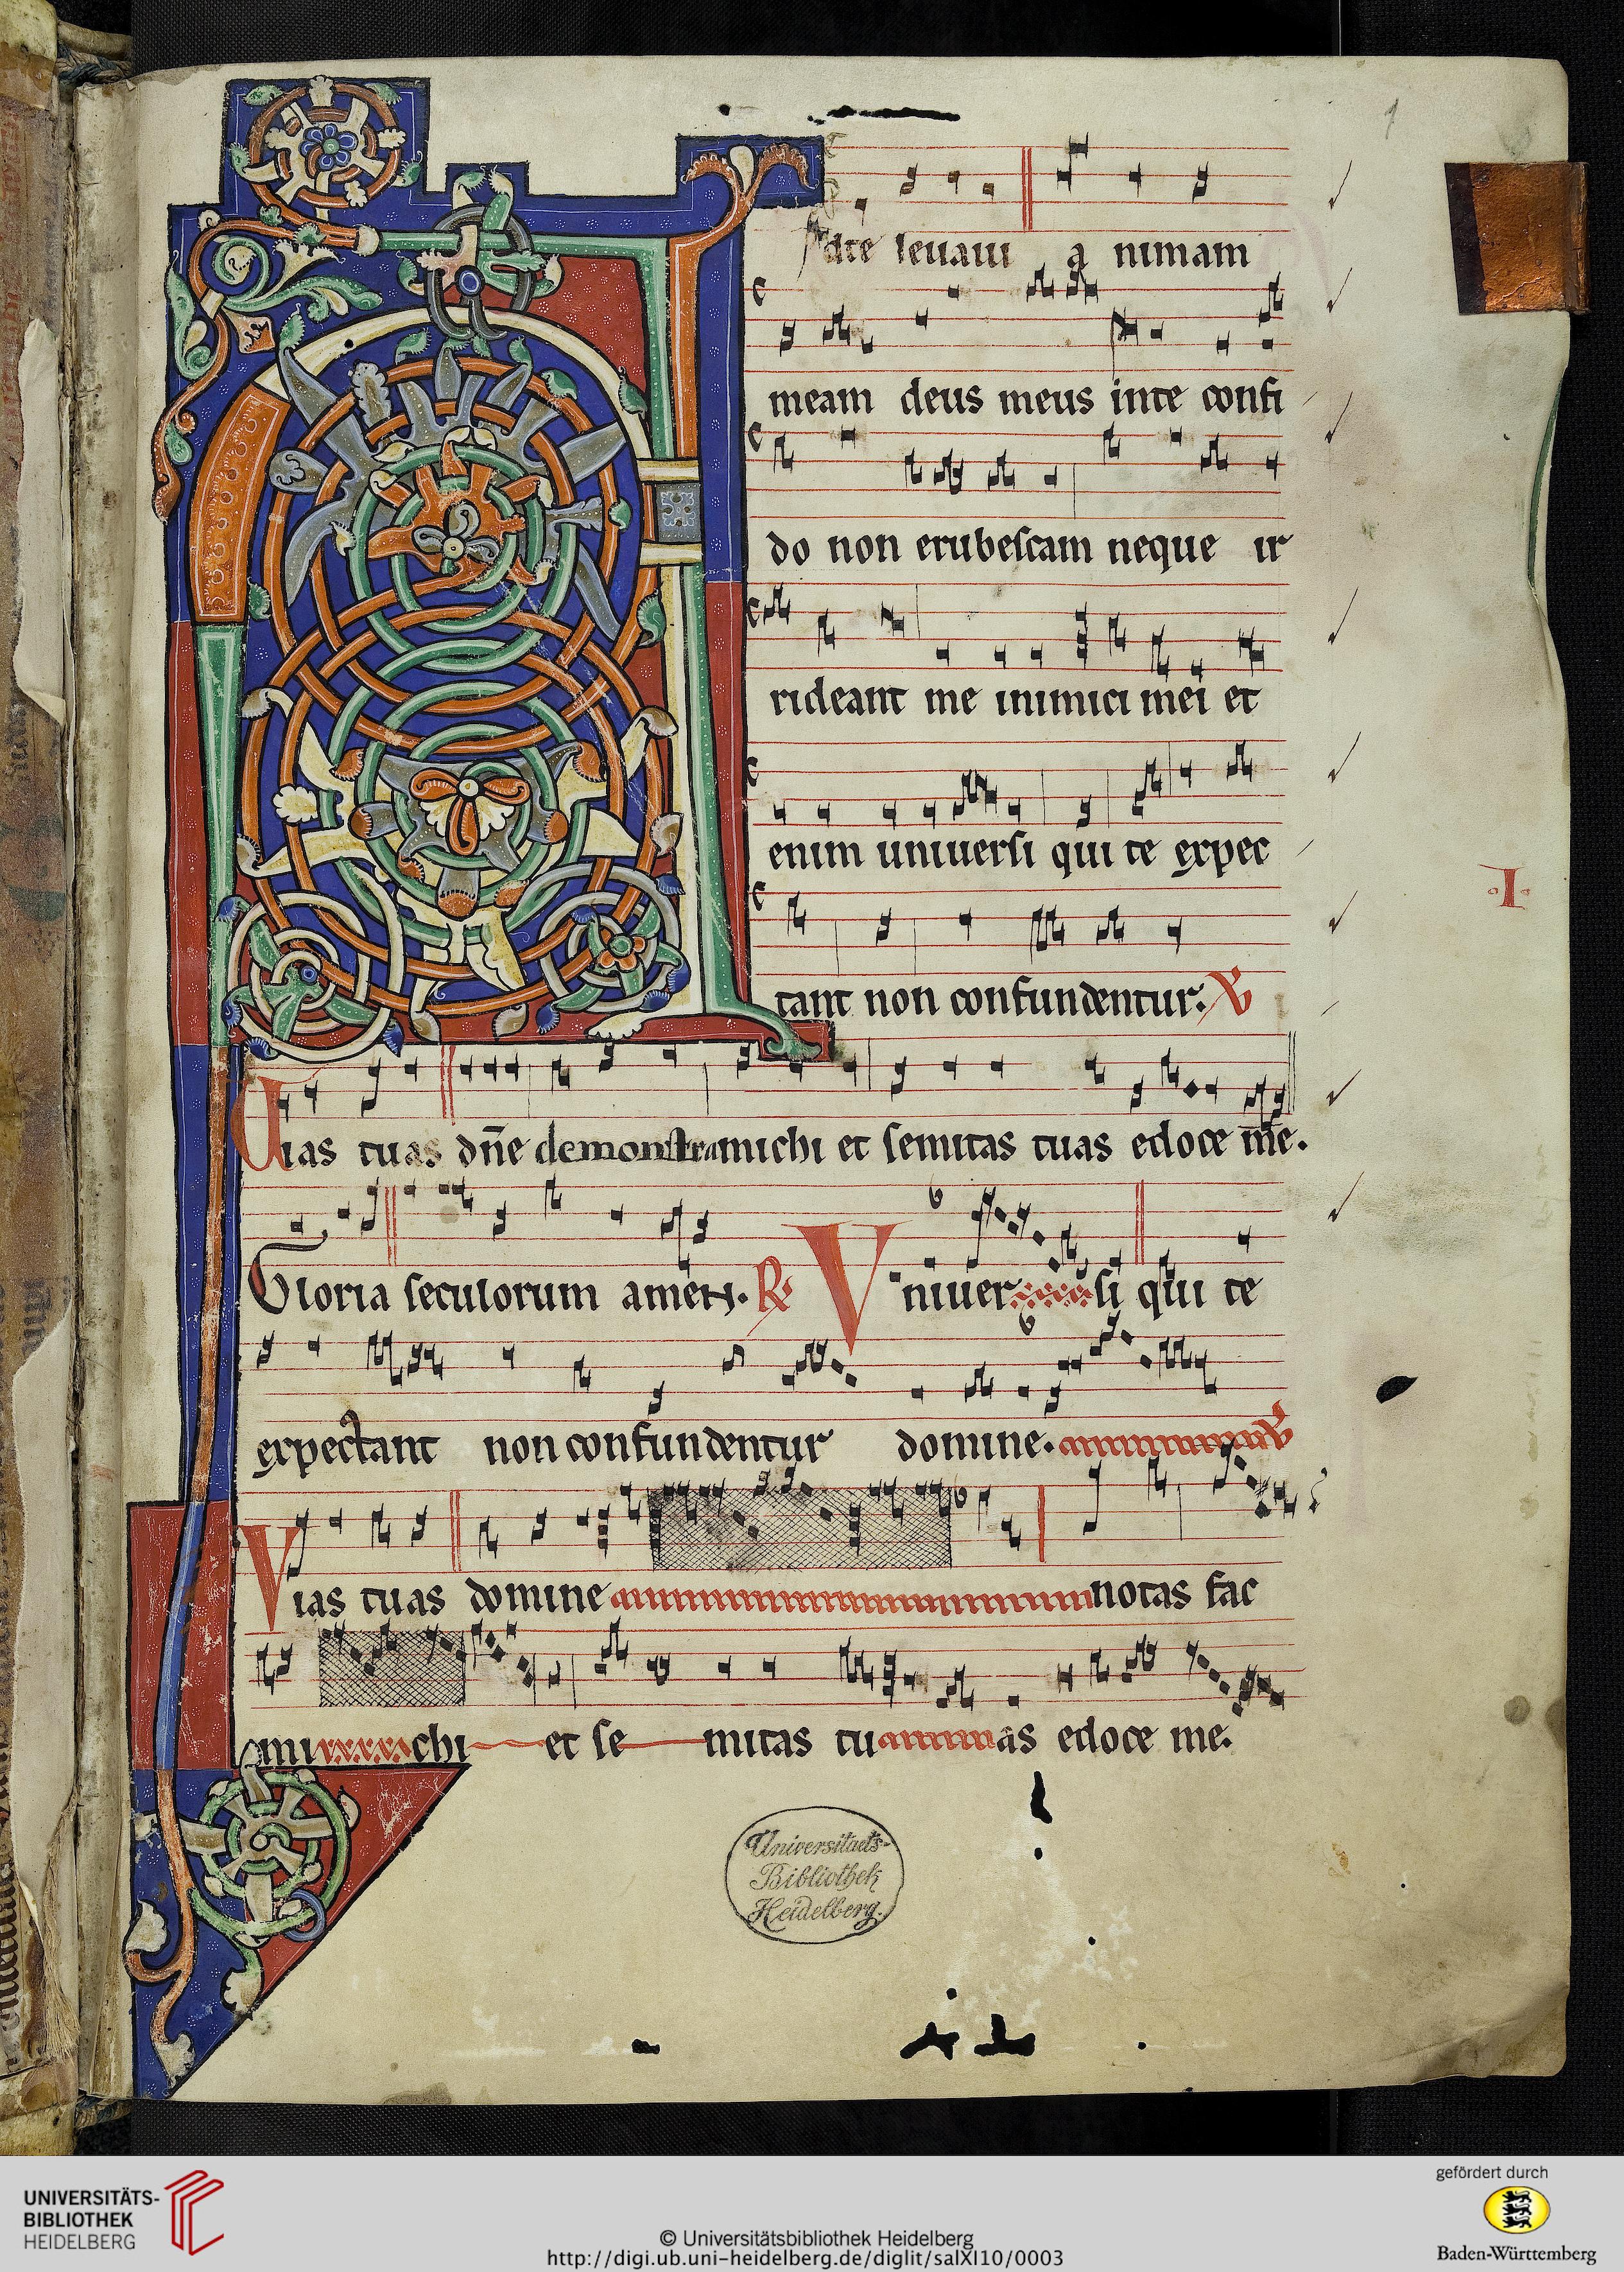 1
Adte levavi a nimam
meam deus meus inte confi
do non erubescam neque ir
rideant me inimici mei et
enim universi qui te expec
·I·
tant non confundentur. V
Vias tuas dn̄e demonstra michi et semitas tuas edoce me.
Gloria seculorum amen. R Vniversi qui te
expectant non confundentur domine. V
Vias tuas domine notas fac
michi et se mitas tuas edoce me.
Universitaets-
Bibliothek
Heidelberg.
UNIVERSITÄTS-
BIBLIOTHEK
HEIDELBERG
© Universitätsbibliothek Heidelberg
http://digi.ub.uni-heidelberg.de/diglit/salXI10/0003
gefördert durch
Baden-Württemberg